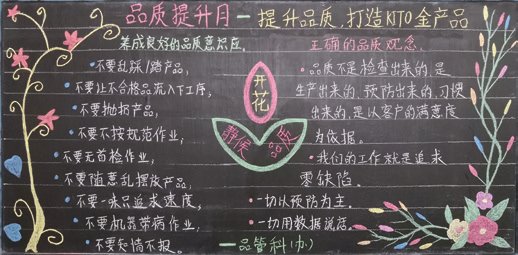 品质提升月—提升品质、打造KITO金产品
养成良好的品质意识应。
不要乱踩/踏产品,
不要让不合格品流入下工序,
不要抛损产品,
不要不按规范作业,
不要无首检作业,
不要随意乱摆放产品,
不要一味只追求速度,
不要机器带病作业,
不要知情不报。
开花
靜候
品质
正确的品质观念.
品质不是检查出来的,是
生产出来的、预防出来的、习惯
出来的,是以客户的满意度
为依据。
我们的工作就是追求
零缺陷。
一切以预防为主。
一切用数据说话。
—品管科(办)